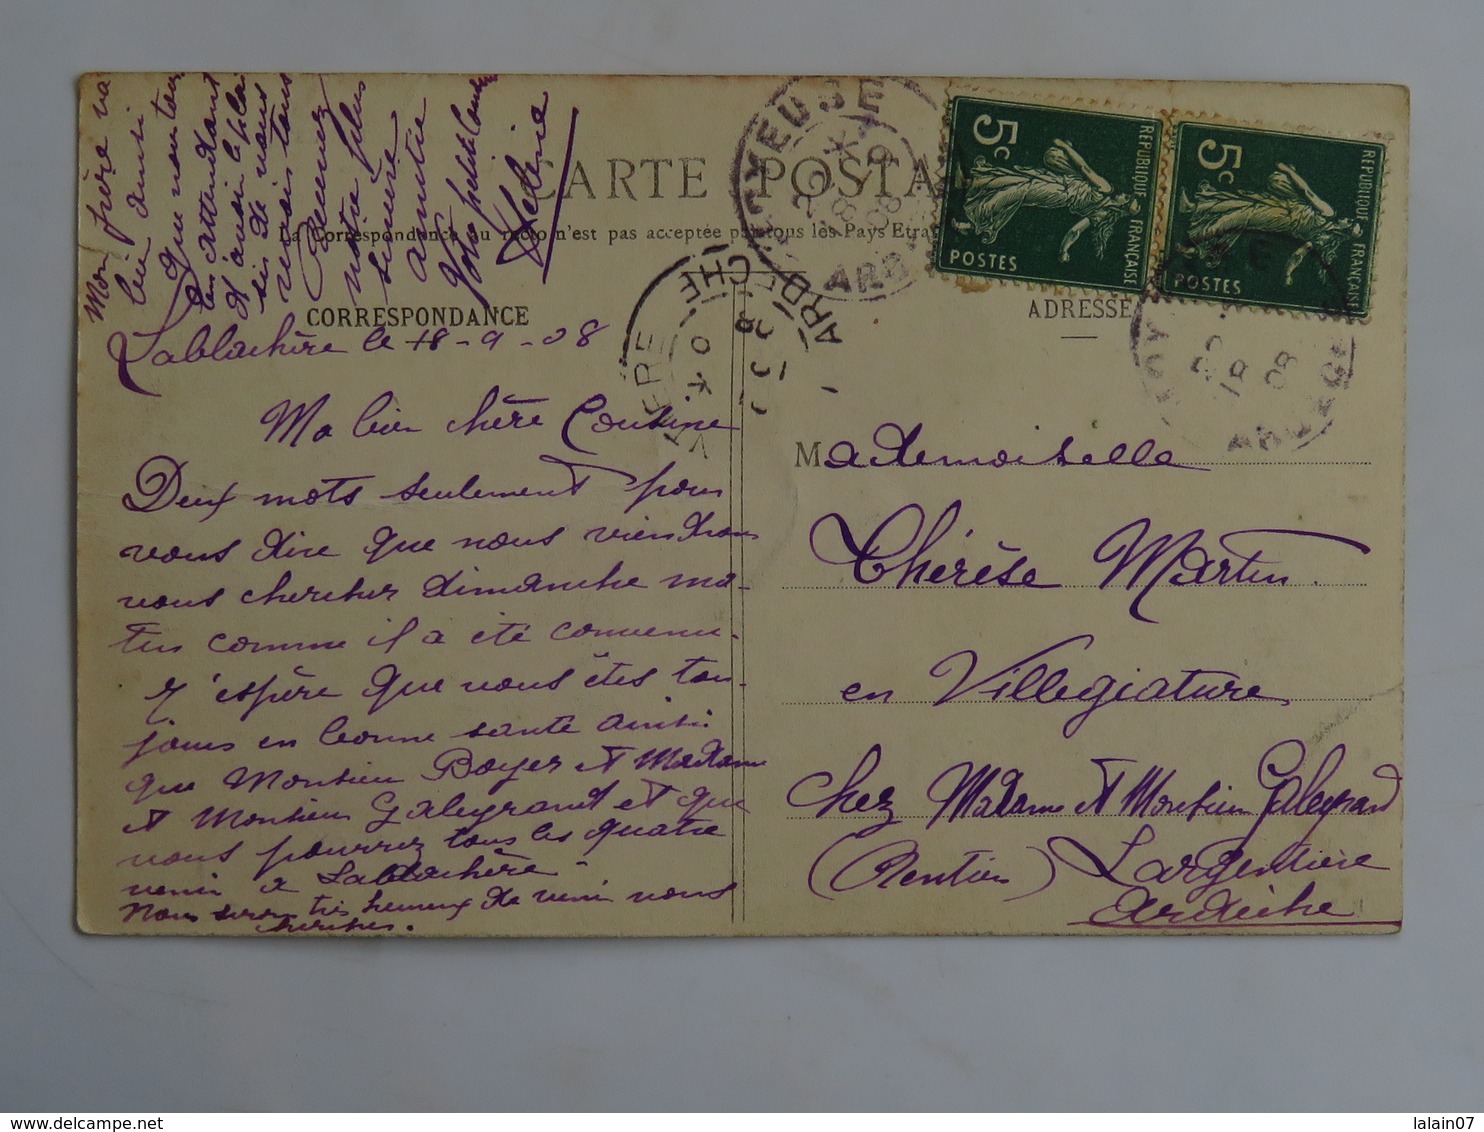 CARTE POSTALE
La Correspondance au recto n'est pas acceptée par tous les Pays Etra
CORRESPONDANCE
ADRESSE
Lablachère le 18-9-08
Ma bien chère Cousine
Deux mots seulement pour
vous dire que nous viendrons
vous chercher dimanche ma-
tin comme il a été convenu.
J'espère que vous êtes tou-
jours en bonne santé ainsi
que Monsieur Boyer et Madame
et Monsieur Galeyrand et que
vous pourrez tous les quatre
venir à Lablachère
Nous serons très heureux de venir vous
chercher.
Mon père va
bien ainsi
que nous tous
en attendant
d'avoir le plai
sir de vous
revoir tous
Recevez
notre plus
sincère
amitié
Votre petite Cousine
Hélène
Mademoiselle
Thérèse Martin
en Villegiature
Chez Madame et Monsieur Galeyrand
(Rentier) Largentière
Ardèche
5c
REPUBLIQUE FRANÇAISE
POSTES
5c
REPUBLIQUE FRANÇAISE
POSTES
JOYEUSE
ARDÈCHE
lalain07